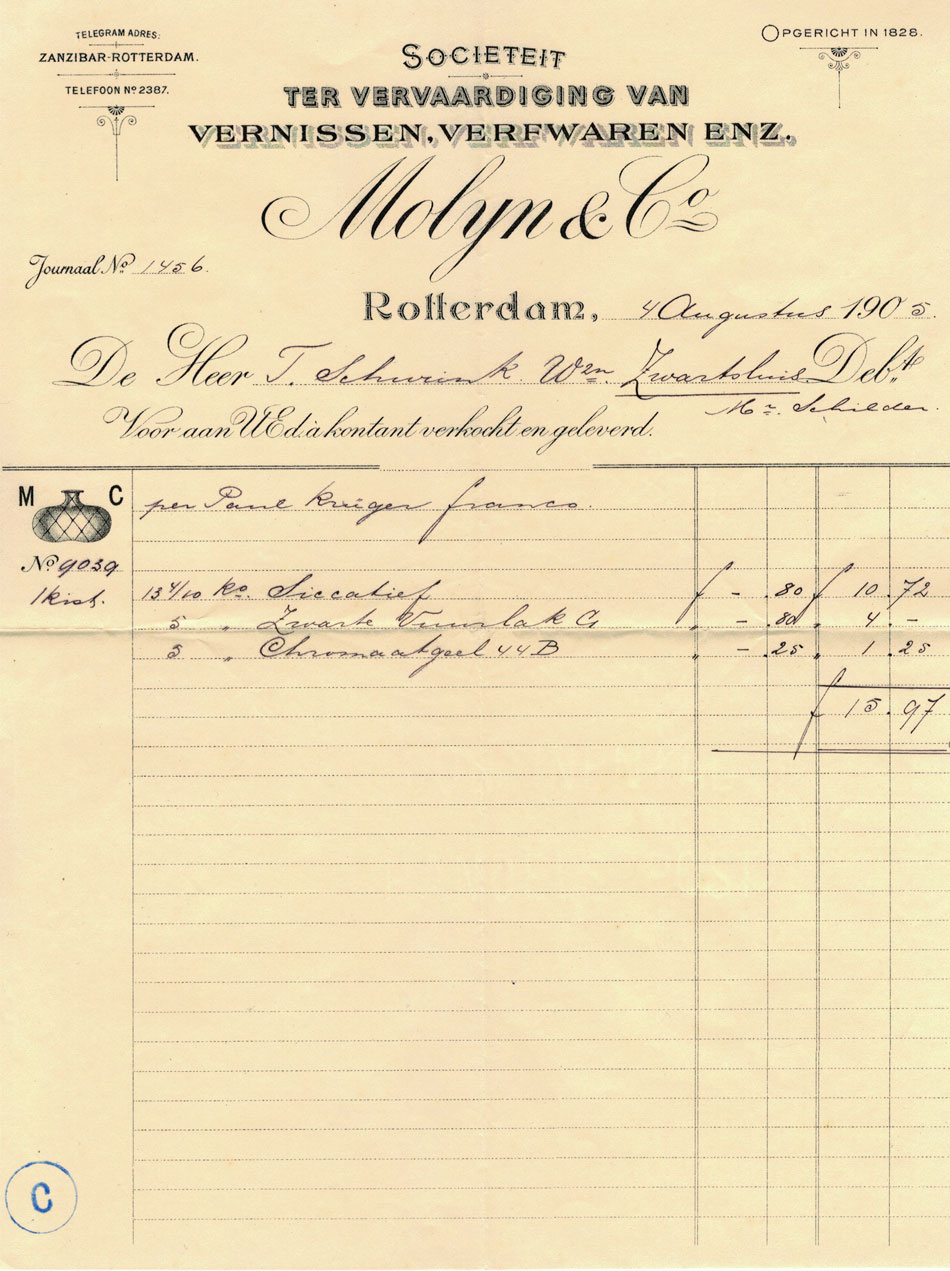 TELEGRAM ADRES:
ZANZIBAR-ROTTERDAM.
TELEFOON No 2387.
OPGERICHT IN 1828.
SOCIETEIT
TER VERVAARDIGING VAN
VERNISSEN, VERFWAREN ENZ.
Molyn & Co
Journaal No 1456.
Rotterdam, 4 Augustus 1905.
De Heer T. Schuurink Wzn. Zwartsluis Debt.
Mr. Schilder.
Voor aan UEd. à kontant verkocht en geleverd.
M C
per Paul Kruger franco.
No 9039
1 kist. 13 4/10 Ko. Siccatief f - .80 f 10.72
5 " Zwarte Vuurlak G " - .80 " 4.-
5 " Chromaatgeel 44 B " - .25 " 1.25
f 15.97
C